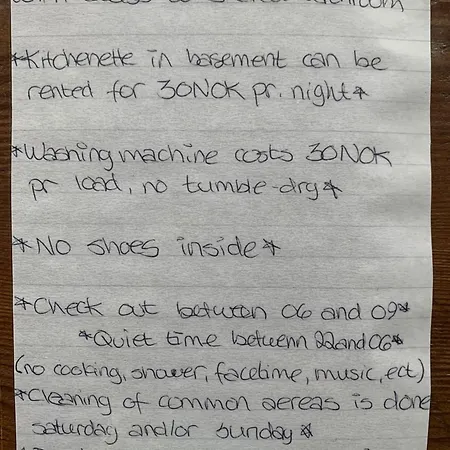 *Kitchenette in basement can be
rented for 30NOK pr. night*
*Washing machine costs 30NOK
pr load, no tumble-dry*
*No shoes inside*
*Check out between 06 and 09*
*Quiet time between 22 and 06*
(no cooking, shower, facetime, music, ect)
*Cleaning of common aereas is done
saturday and/or sunday*